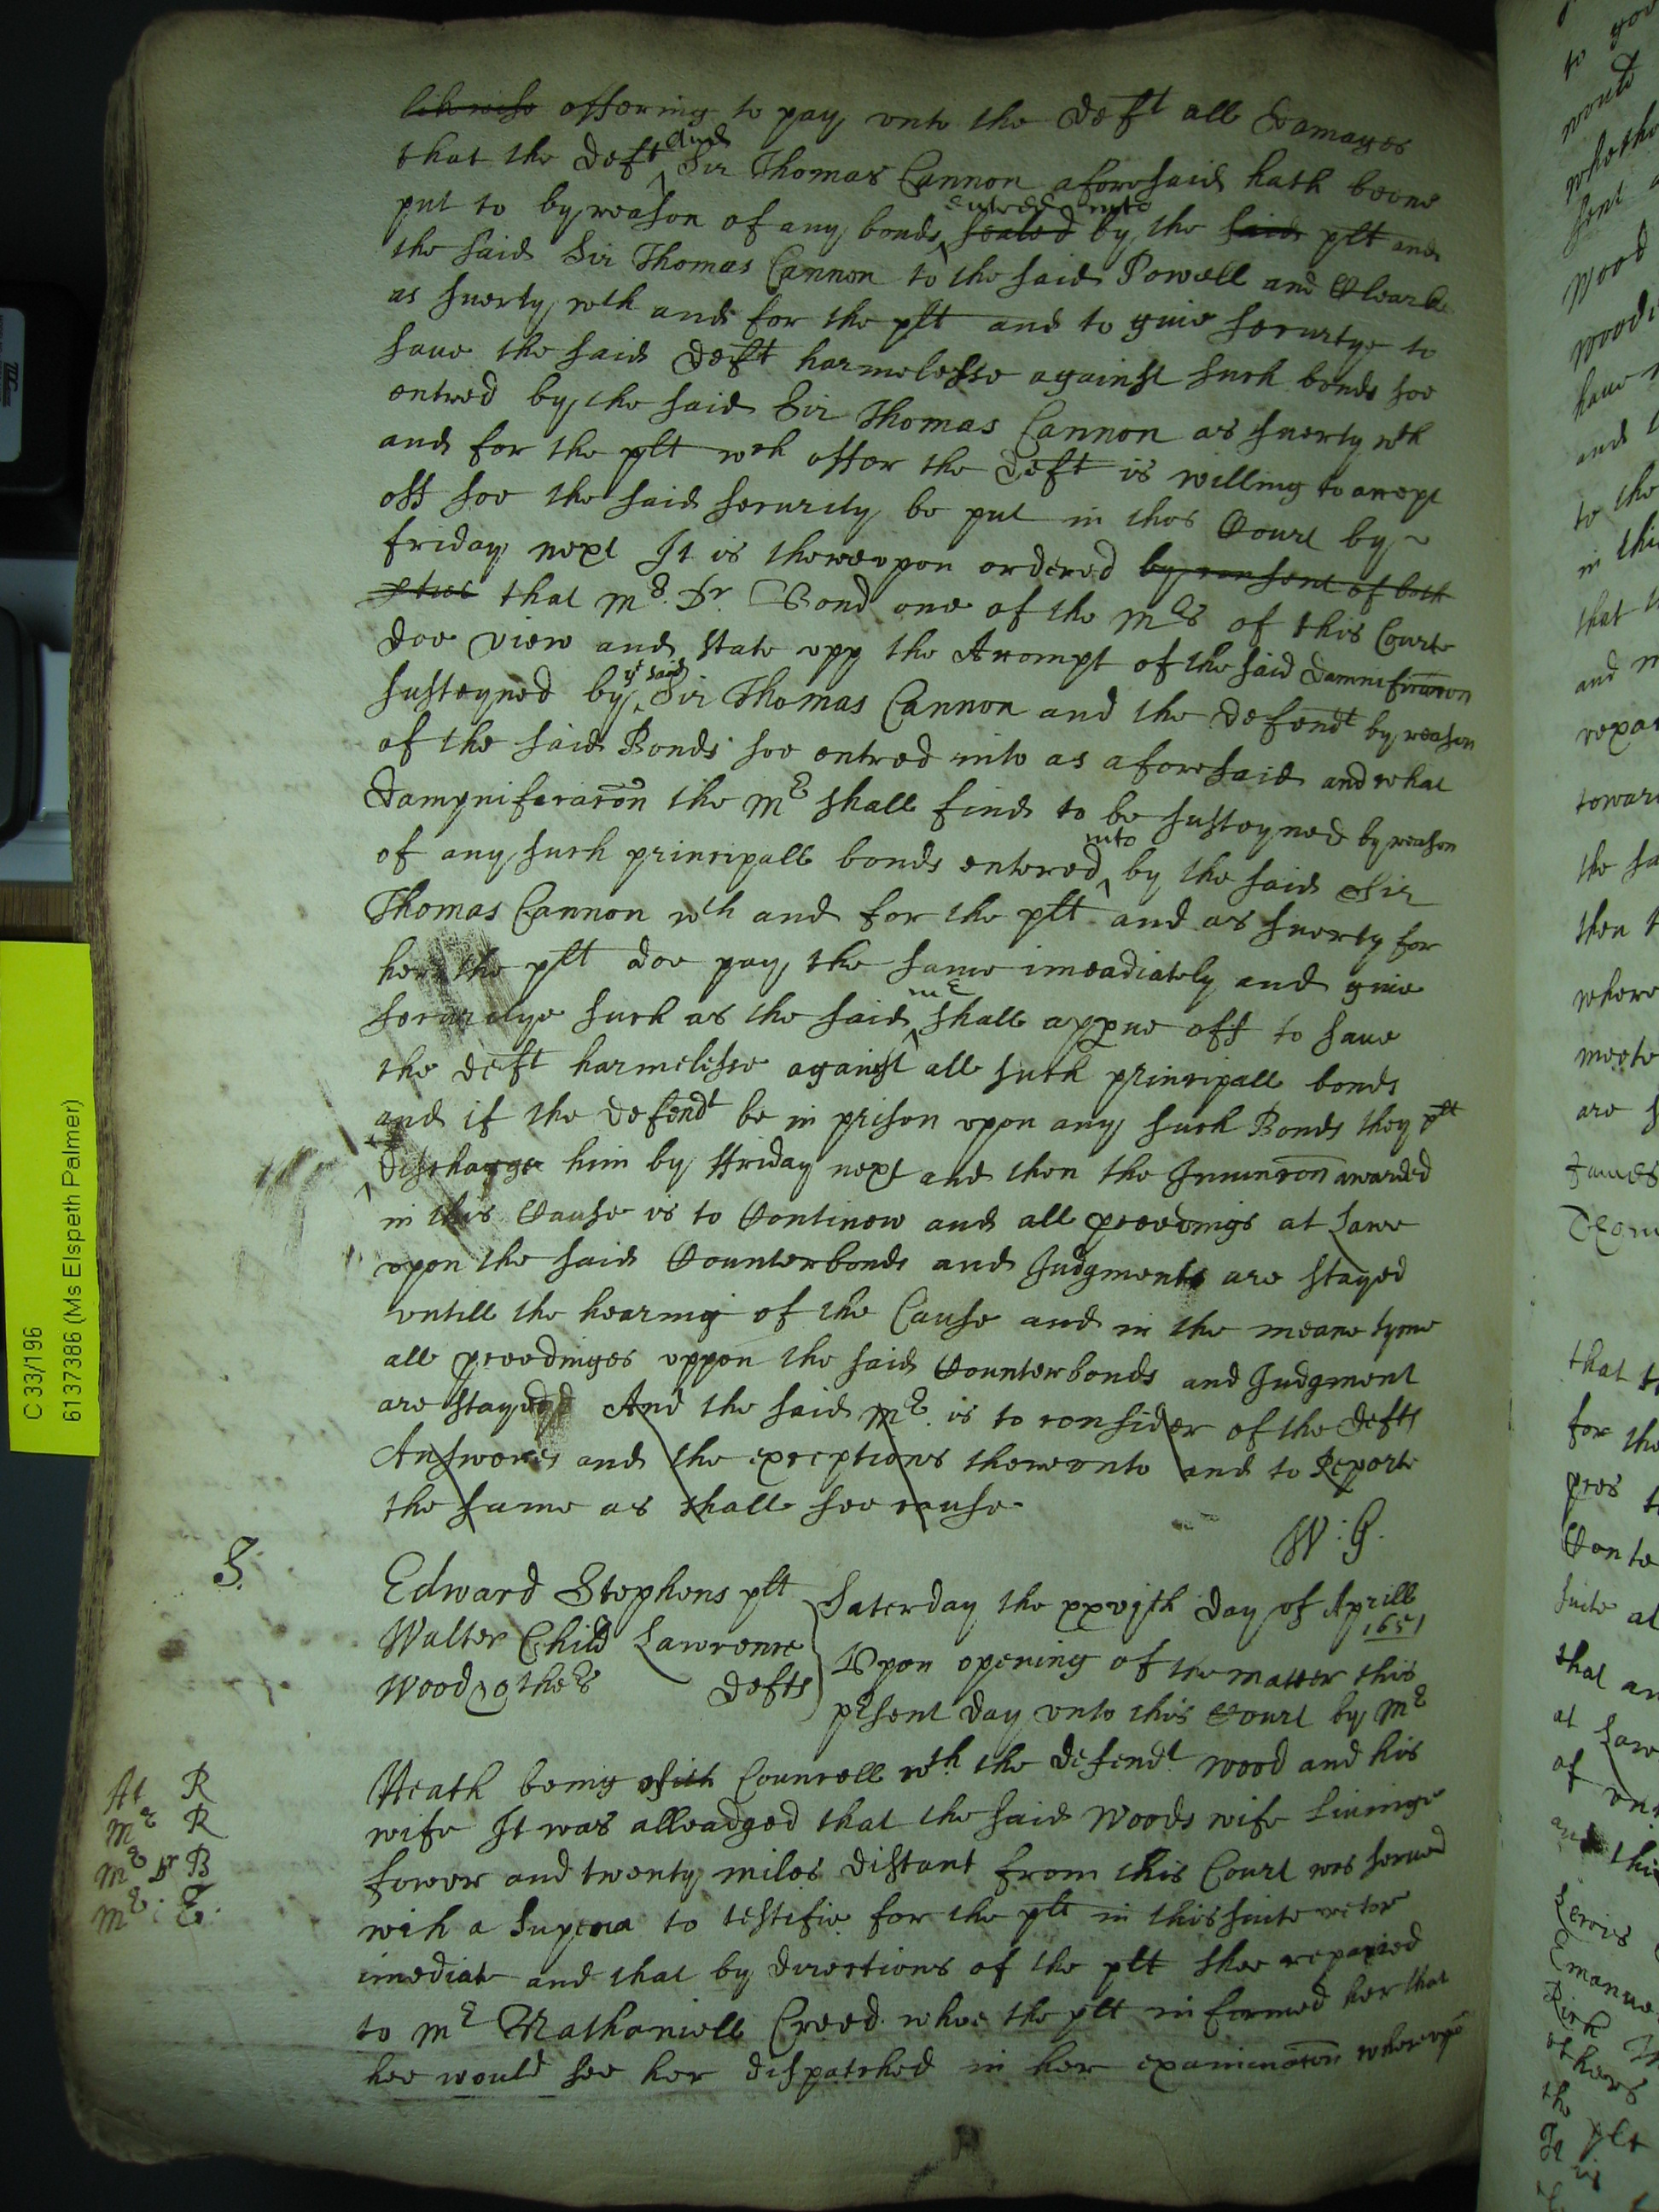 likewise offering to pay vnto the Deft all Damages
that the Deft and Sir Thomas Cannon aforesaid hath beene
put to by reason of any bonds sealed entred into by the said plt and
the said Sir Thomas Cannon to the said Powell and Clearke
as suerty wth and for the plt and to giue securitye to
saue the said Deft harmelesse against such bonds soe
entred by the said Sir Thomas Cannon as suerty wth
and for the plt wch offer the Deft is willing to accept
off soe the said security be put in this Court by
friday next It is therevpon ordered by consent of both
pties that Mr. Dr. Bond one of the Mrs of this Courte
doe view and state vpp the Accompt of the said damnificacon
susteyned by ye said Sir Thomas Cannon and the Defendt by reason
of the said Bonds soe entred into as aforesaid and what
Dampnificacon the Mr shall find to be susteyned by reason
of any such principall bonds entered into by the said Sir
Thomas Cannon wth and for the plt and as suerty for
her the plt doe pay the same imeadiately and giue
securitye such as the said Mr shall appue off to saue
the deft harmelesse against all such principall bonds
and if the defendt be in prison vpon any such Bonds they plt
discharge him by ffriday next and then the Iniunccon awarded
in this Cause is to Continew and all proceedings at Lawe
vpon the said Counterbonds and Judgments are stayed
vntill the hearing of the Cause and in the meane tyme
all proceedinges vppon the said Counterbonds and Judgment
are stayed And the said Mr. is to consider of the defts
Answeres and the exceptions therevnto and to Reporte
the same as shall see cause
W: G.
S.
Edward Stephens plt
Walter Child Lawrence
Wood & others defts
Saterday the xxvjth day of Aprill
1651
Vpon opening of the matter this
pßent day vnto this Court by Mr
Heath being of Councell wth the defendt wood and his
wife It was alleadged that the said Woods wife liuinge
fower and twenty miles distant from this Court was serued
with a Supena to testifie for the plt in this suite
imediate and that by directions of the plt shee repaired
to Mr Nathaniell Creed whoe the plt informed her that
hee would see her dispatched in her examinacon wherevpo
At R
Mr R
Mr Dr B
Mr: E.
C 33/196
6137386 (Ms Elspeth Palmer)